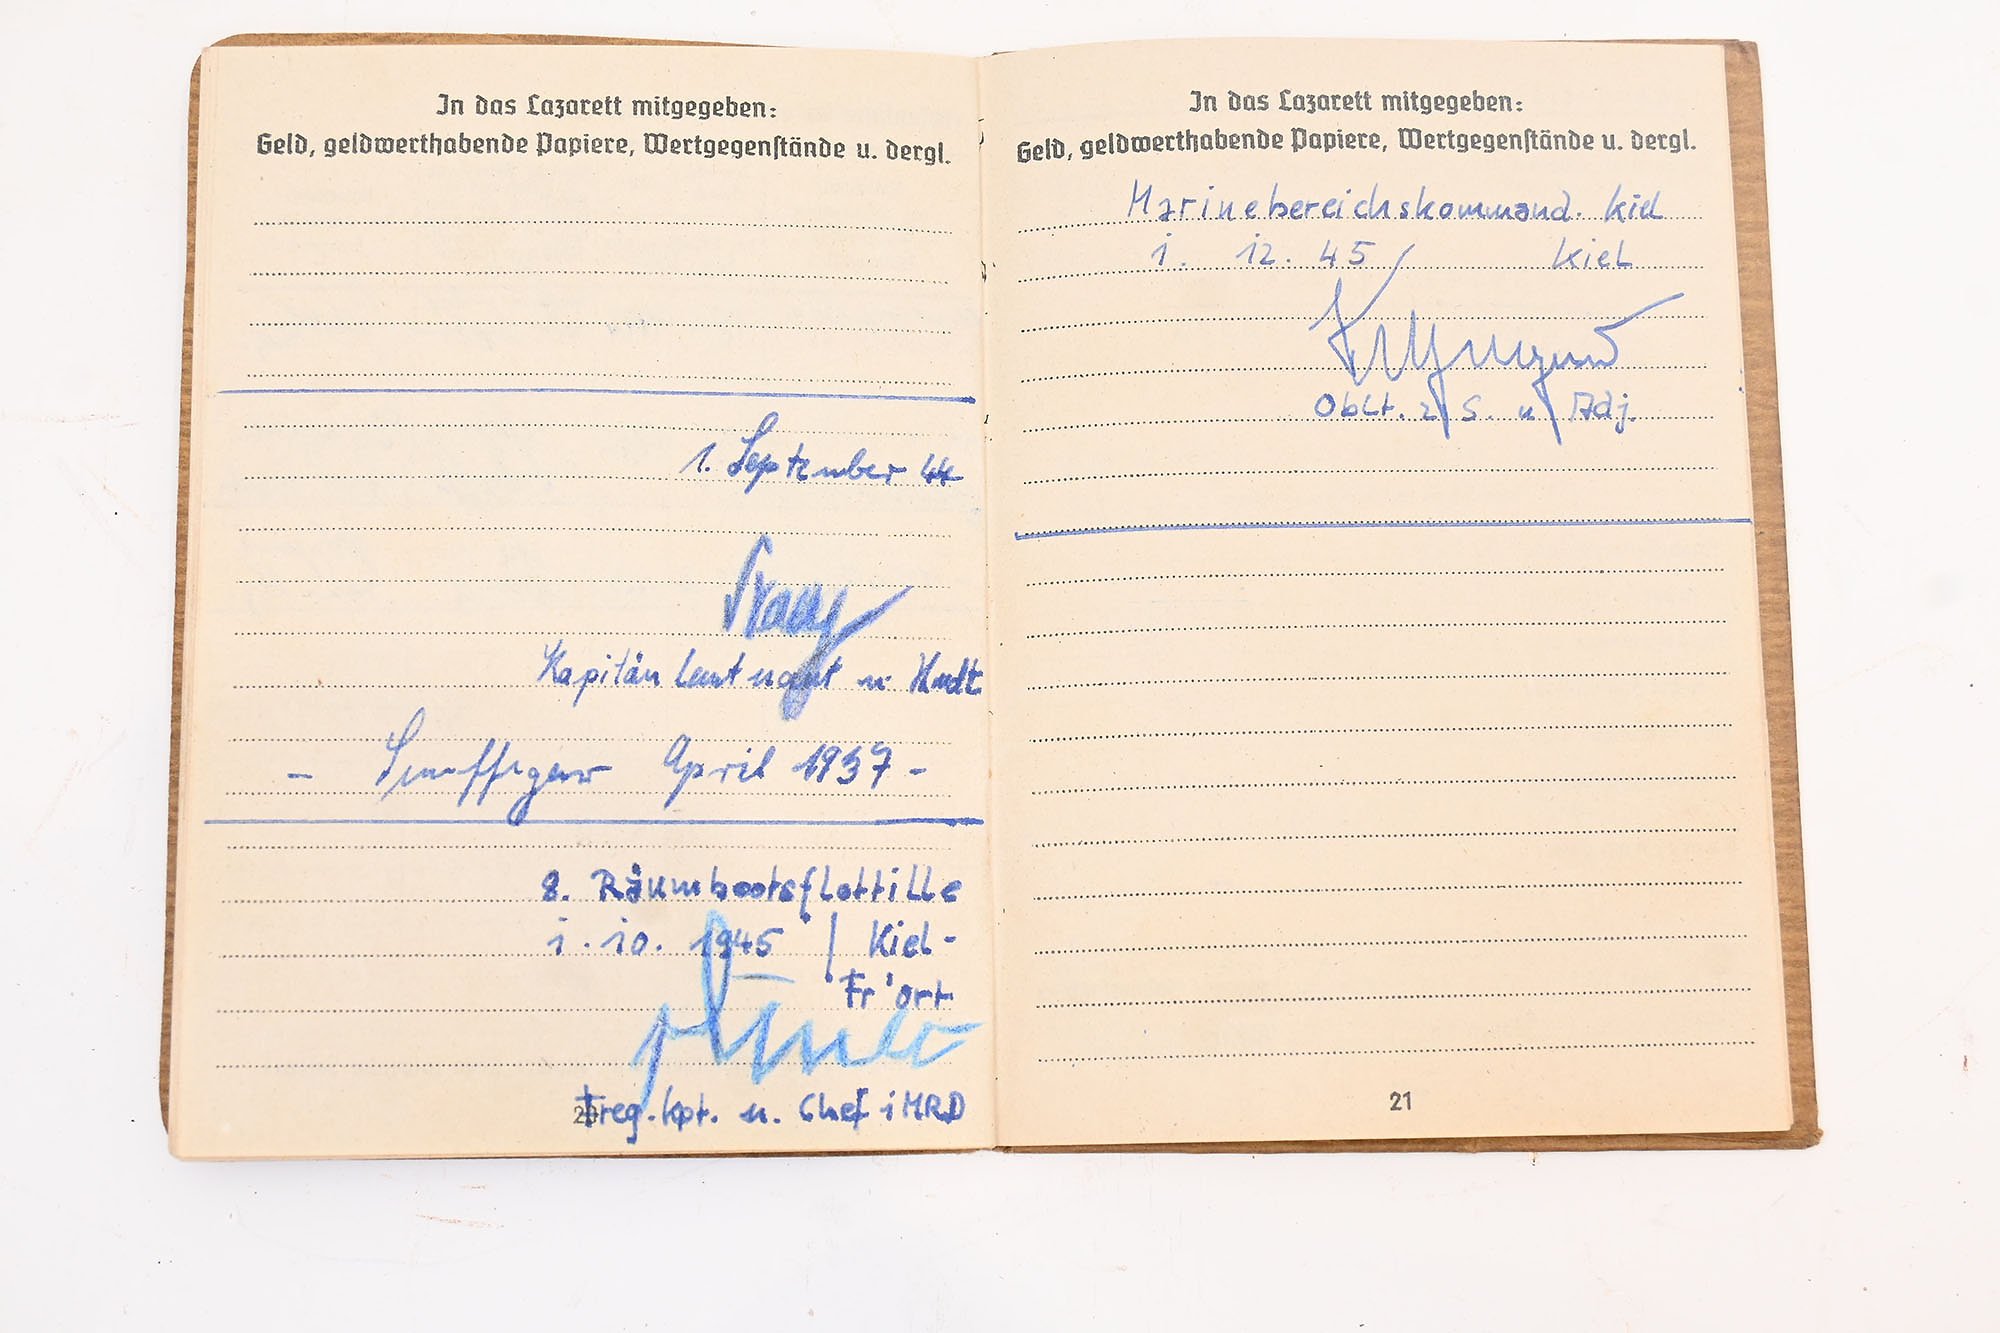 In das Lazarett mitgegeben:
Geld, geldwerthabende Papiere, Wertgegenstände u. dergl.
1. September 44
Kapitänleutnant u Kmdt
– April 1937 –
8. Räumbootsflottille
1. 10. 1945 / Kiel-
Fr'ort
Freg. Kpt. u. Chef i MRD
20
In das Lazarett mitgegeben:
Geld, geldwerthabende Papiere, Wertgegenstände u. dergl.
Marinebereichskommand. Kiel
1. 12. 45 Kiel
Oblt. z S. u Adj.
21